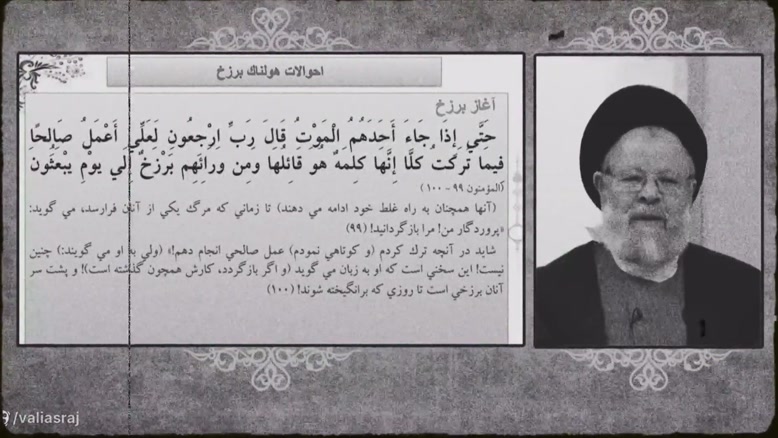 احوالات هولناك برزخ
آغاز برزخ
حَتَّي إِذا جَاءَ أَحَدَهُمُ الْمَوْتُ قَالَ رَبِّ ارْجِعُونِ لَعَلِّي أَعْمَلُ صَالِحًا
فيمَا تَرَكْتُ كَلَّا إِنَّهَا كَلِمَةٌ هُوَ قَائِلُها وَمِن وَرَائِهِم بَرْزَخٌ إِلَي يوْمِ يبْعَثُونَ
(المؤمنون ۹۹ ~ ۱۰۰)
(آنها همچنان به راه غلط خود ادامه مي دهند) تا زماني كه مرگ يكي از آنان فرارسد، مي گويد:
«پروردگار من! مرا بازگردانيد! (۹۹)
شايد در آنچه ترك كردم (و كوتاهي نمودم) عمل صالحي انجام دهم!» (ولي به او مي گويند:) چنين
نيست! اين سخني است كه او به زبان مي گويد (و اگر بازگردد، كارش همچون گذشته است)! و پشت سر
آنان برزخي است تا روزي كه برانگيخته شوند! (۱۰۰)
/valiasraj